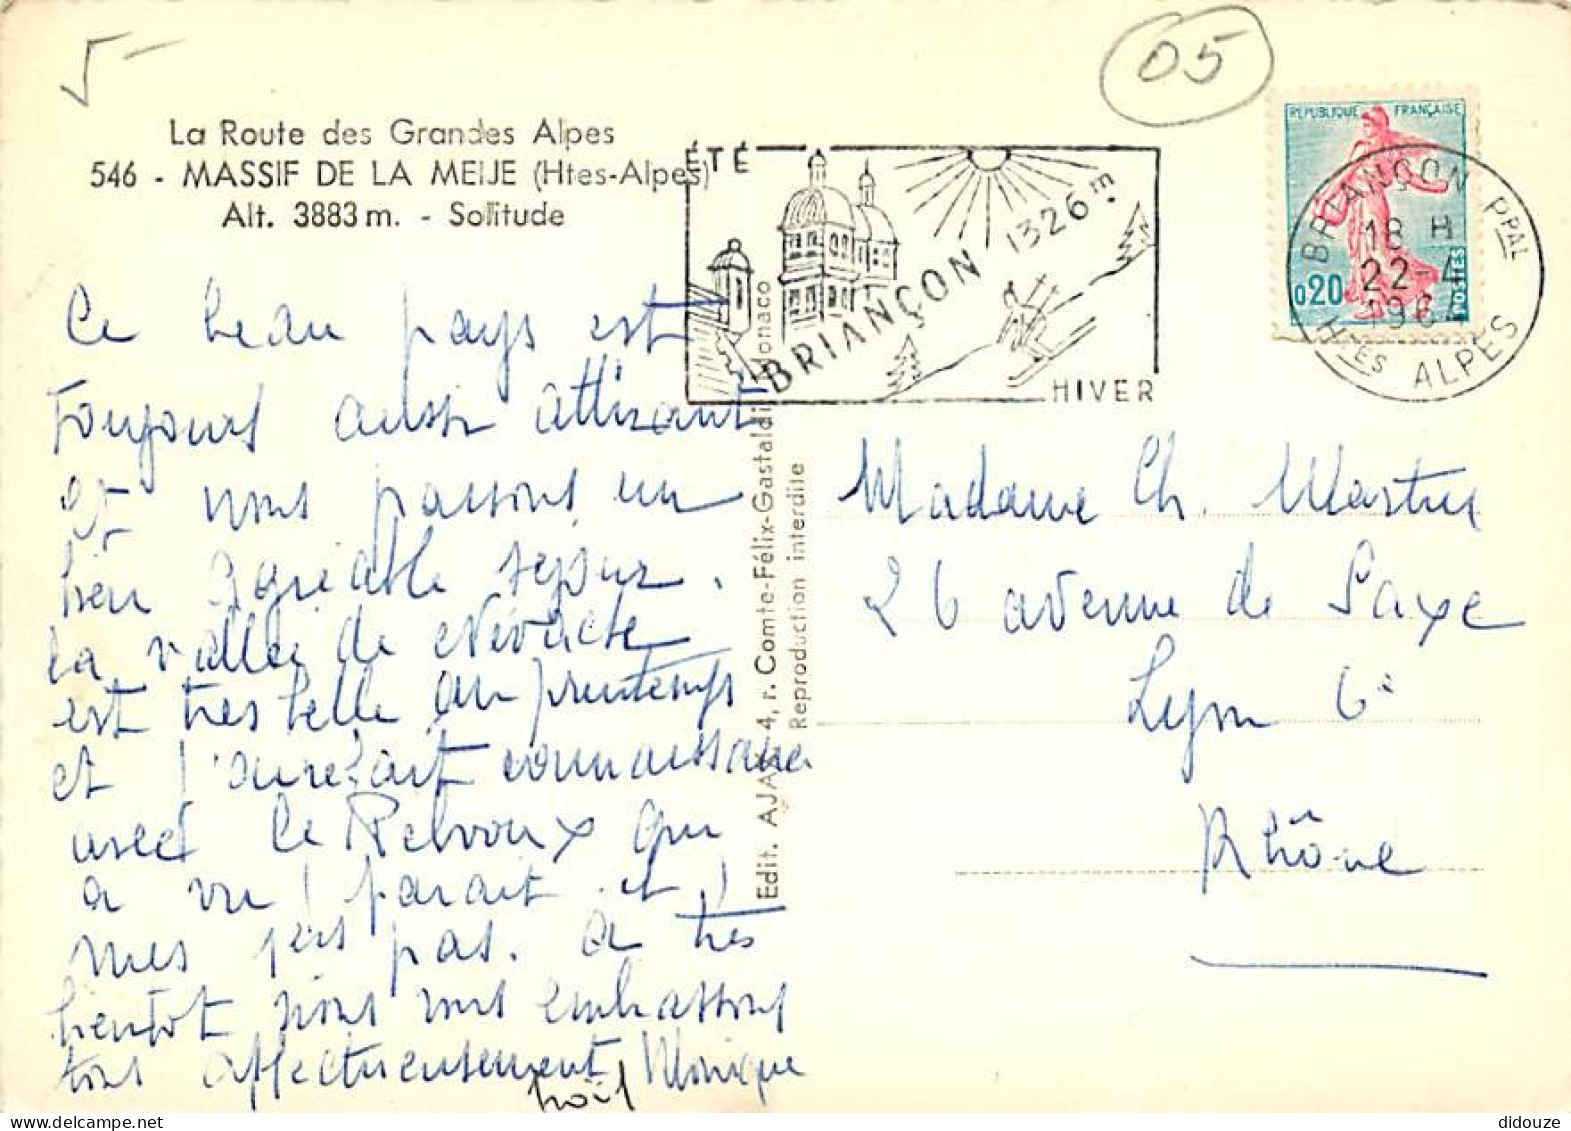 5-
05
La Route des Grandes Alpes
546 - MASSIF DE LA MEIJE (Htes-Alpes)
Alt. 3883 m. - Sollitude
ÉTÉ
BRIANÇON 1326m.
HIVER
RÉPUBLIQUE FRANÇAISE
0,20
POSTES
BRIANÇON PPAL
18 H
22-4
196
HTES ALPES
Ce beau pays est
toujours aussi attirant
et nous passons un
bien agréable séjour.
La vallée de Névache
est très belle au printemps
et
connaissance
avec le Pelvoux qui
a vu (parait-il)
mes 1ers pas. A très
bientôt nous vous embrassons
tous affectueusement Monique
Noël
Edit. AJAX 4, r. Comte-Félix-Gastaldi Monaco
Reproduction interdite
Madame Ch. Martin
26 avenue de Saxe
Lyon 6e
Rhône
didouze